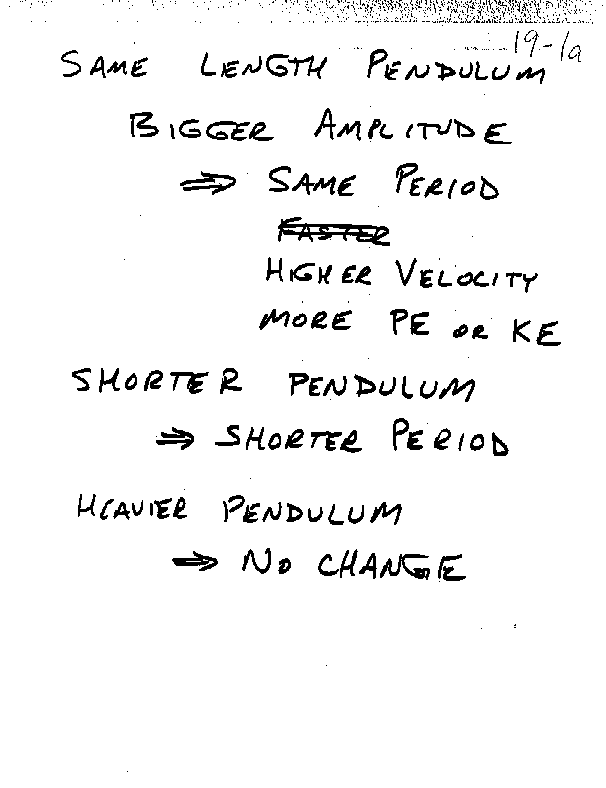 19-1a
SAME LENGTH PENDULUM
BIGGER AMPLITUDE
⇒ SAME PERIOD
FASTER
HIGHER VELOCITY
MORE PE OR KE
SHORTER PENDULUM
⇒ SHORTER PERIOD
HEAVIER PENDULUM
⇒ NO CHANGE